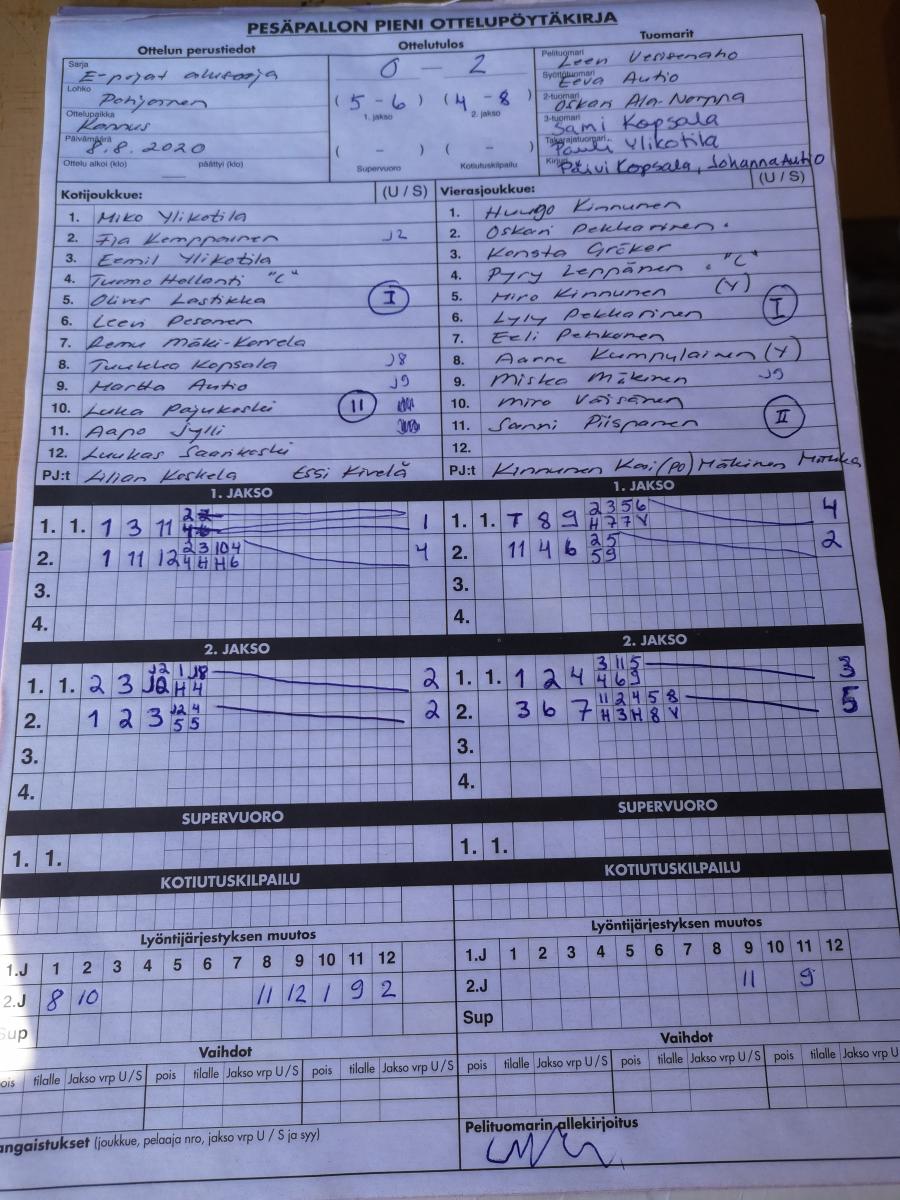 PESÄPALLON PIENI OTTELUPÖYTÄKIRJA
Ottelun perustiedot
Ottelutulos
Tuomarit
Sarja
E-pojat aluesarja
Lohko
Pohjoinen
Ottelupaikka
Kannus
Päivämäärä
8.8.2020
Ottelu alkoi (klo) päättyi (klo)
0 — 2
(5 - 6) (4 - 8)
1. jakso 2. jakso
( - ) ( - )
Supervuoro Kotiutuskilpailu
Pelituomari
Leen
Syöttötuomari
Eeva Autio
2-tuomari
Oskari Ala-Norppa
3-tuomari
Sami Kopsala
Takarajatuomari
Pauli Ylikotila
Kirjuri
Päivi Kopsala, Johanna Autio
Kotijoukkue: (U / S)
1. Miko Ylikotila
2. Iia Kemppainen J2
3. Eemil Ylikotila
4. Tuomo Hollanti "C"
5. Oliver Lastikka I
6. Leevi Pesonen
7. Remu Mäki-Korvela
8. Tuukka Kopsala J8
9. Martta Autio J9
10. Luka Pajukoski II
11. Aapo Jylli
12. Luukas Saarikoski
PJ:t Lilian Koskela Essi Kivelä
Vierasjoukkue: (U / S)
1. Huugo Kinnunen
2. Oskari Pekkarinen .
3. Konsta Gröker
4. Pyry Leppänen . "C"
5. Miro Kinnunen (Y)
6. Lyly Pekkarinen I
7. Eeli Pehkonen
8. Aarne Kumpulainen (Y)
9. Miska Mäkinen J9
10. Miro Väisänen
11. Sanni Piispanen II
12.
PJ:t Kinnunen Kai (PO) Mäkinen
1. JAKSO
1. 1. 1 3 11 1
2. 1 11 12 2 3 10 4 4
4 H H 6
3.
4.
1. JAKSO
1. 1. 7 8 9 2 3 5 6 4
H 7 7 Y
2. 11 4 6 2 5 2
5 9
3.
4.
2. JAKSO
1. 1. 2 3 J2 1 J8 2
H 4
2. 1 2 3 J2 4 2
5 5
3.
4.
2. JAKSO
1. 1. 1 2 4 3 11 5 3
4 6 9
2. 3 6 7 11 2 4 5 8 5
H 3 H 8 Y
3.
4.
SUPERVUORO
1. 1.
SUPERVUORO
1. 1.
KOTIUTUSKILPAILU
KOTIUTUSKILPAILU
Lyöntijärjestyksen muutos
1.J 1 2 3 4 5 6 7 8 9 10 11 12
2.J 8 10 11 12 1 9 2
Sup
Lyöntijärjestyksen muutos
1.J 1 2 3 4 5 6 7 8 9 10 11 12
2.J 11 9
Sup
Vaihdot
pois tilalle Jakso vrp U / S pois tilalle Jakso vrp U / S pois tilalle Jakso vrp U / S
Vaihdot
pois tilalle Jakso vrp U / S pois tilalle Jakso vrp U / S pois tilalle Jakso vrp U
angaistukset (joukkue, pelaaja nro, jakso vrp U / S ja syy)
Pelituomarin allekirjoitus